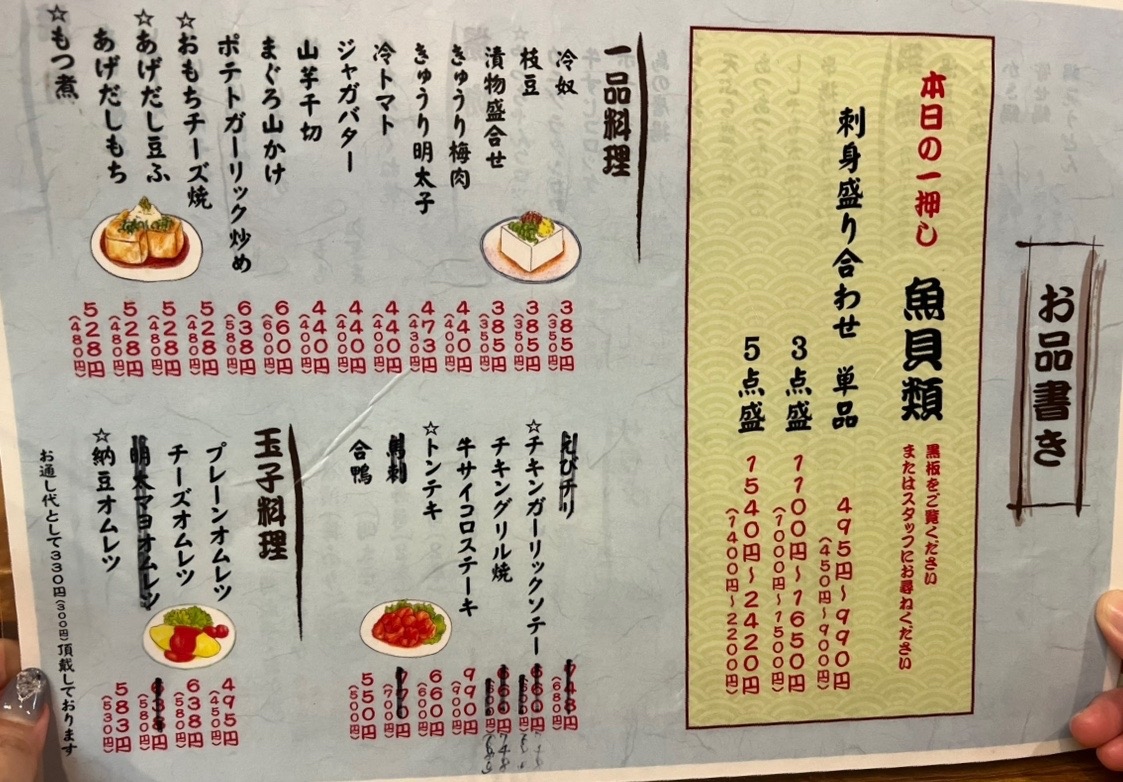 お品書き
本日の一押し 魚貝類
黒板をご覧ください
またはスタッフにお尋ねください
刺身盛り合わせ 単品 495円～990円
(450円～900円)
3点盛 1100円～1650円
(1000円～1500円)
5点盛 1540円～2420円
(1400円～2200円)
一品料理
冷奴 385円
(350円)
枝豆 385円
(350円)
漬物盛合せ 385円
(350円)
きゅうり梅肉 440円
(400円)
きゅうり明太子 473円
(430円)
冷トマト 440円
(400円)
ジャガバター 440円
(400円)
山芋千切 440円
(400円)
まぐろ山かけ 660円
(600円)
ポテトガーリック炒め 638円
(580円)
☆おもちチーズ焼 528円
(480円)
☆あげだし豆ふ 528円
(480円)
あげだしもち 528円
(480円)
☆もつ煮 528円
(480円)
えびチリ 748円
(680円)
☆チキンガーリックソテー 660円
チキングリル焼 660円
牛サイコロステーキ 990円
(900円)
☆トンテキ 660円
(600円)
馬刺 770円
(700円)
合鴨 550円
(500円)
玉子料理
プレーンオムレツ 495円
(450円)
チーズオムレツ 638円
(580円)
明太マヨオムレツ 638円
(580円)
☆納豆オムレツ 583円
(530円)
お通し代として330円(300円)頂戴しております